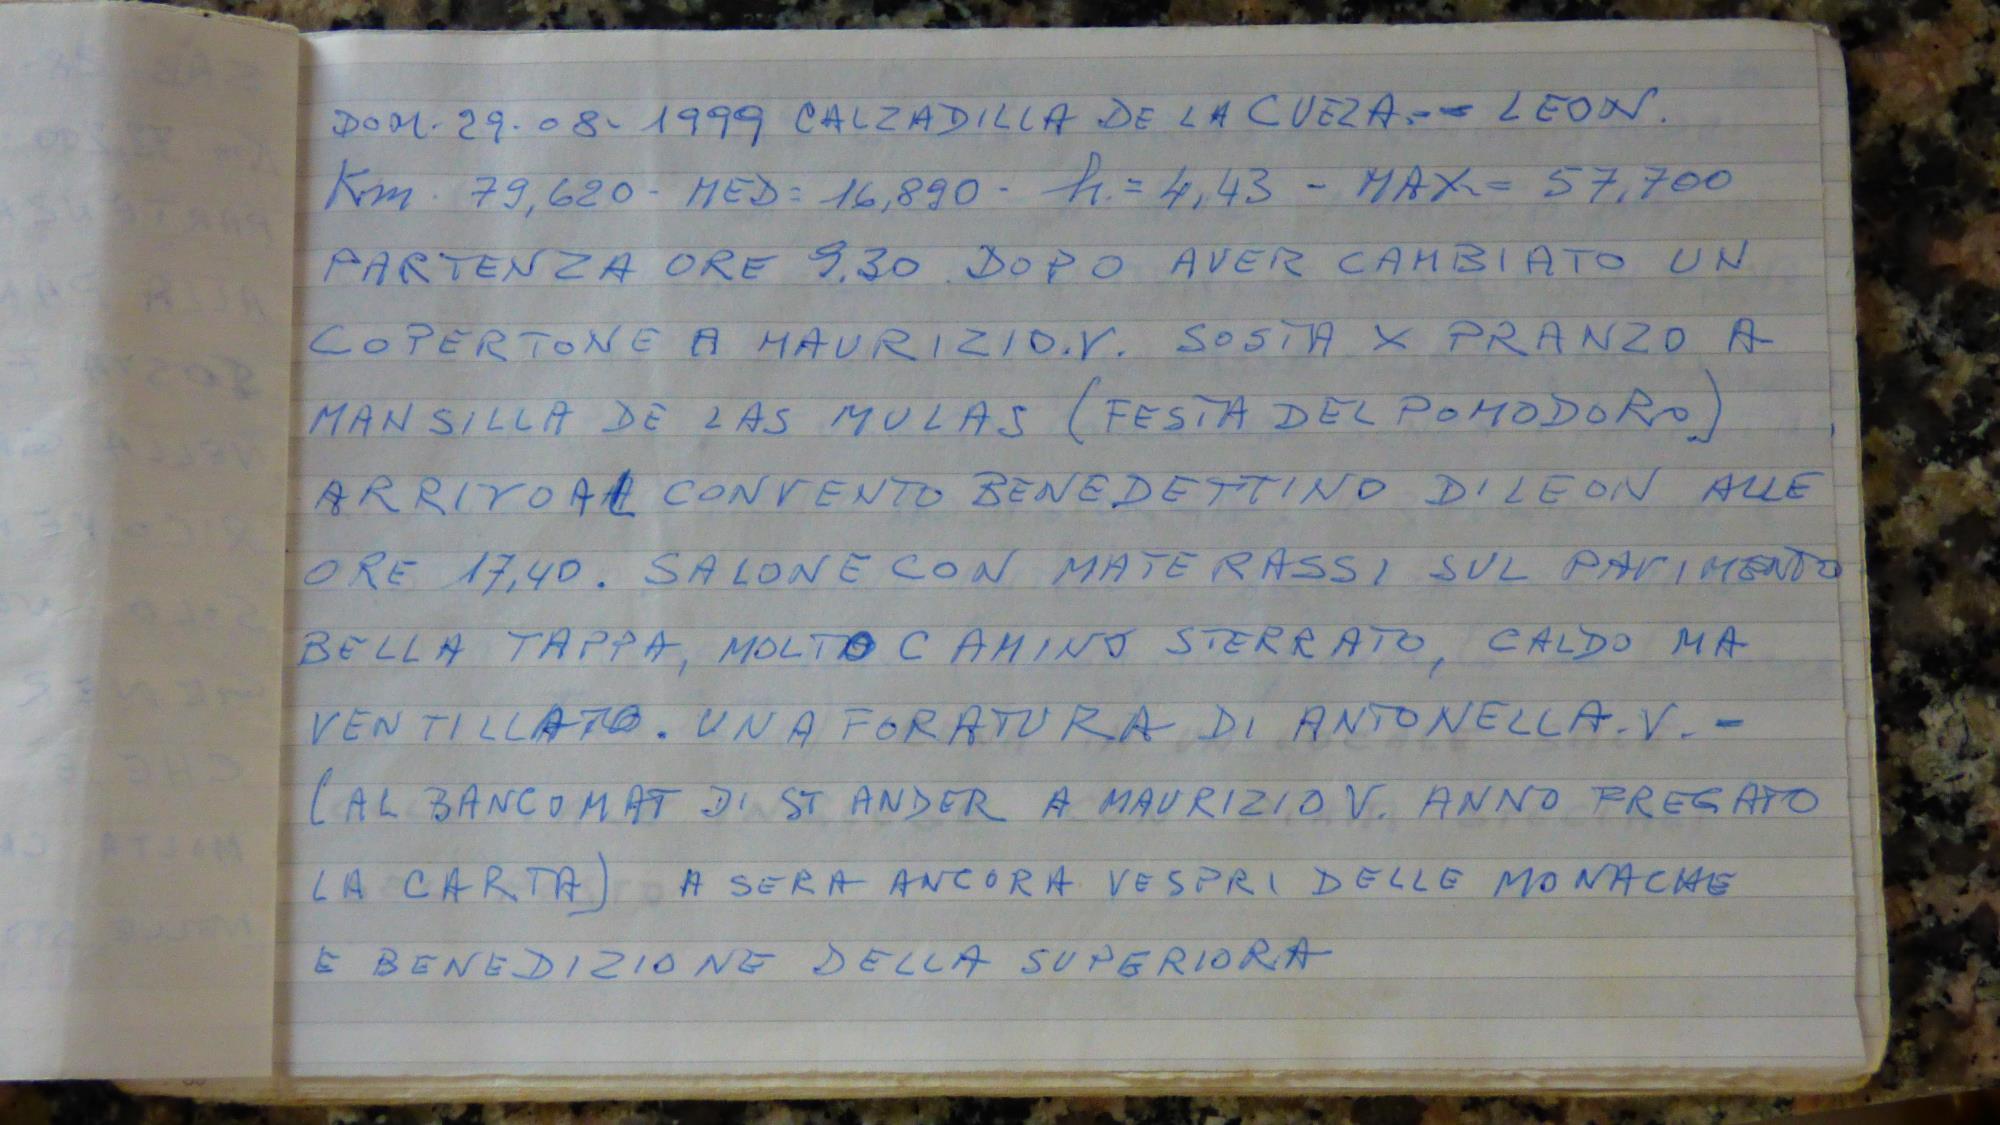 DOM. 29.08.1999 CALZADILLA DE LA CUEZA -- LEON.
Km. 79,620 - MED = 16,890 - h. = 4,43 - MAX = 57,700
PARTENZA ORE 9.30 DOPO AVER CAMBIATO UN
COPERTONE A MAURIZIO.V. SOSTA X PRANZO A
MANSILLA DE LAS MULAS (FESTA DEL POMODORO)
ARRIVO AL CONVENTO BENEDETTINO DI LEON ALLE
ORE 17,40. SALONE CON MATERASSI SUL PAVIMENTO
BELLA TAPPA, MOLTO CAMINO STERRATO, CALDO MA
VENTILLATO. UNA FORATURA DI ANTONELLA.V. -
(AL BANCOMAT DI ST ANDER A MAURIZIO V. ANNO FREGATO
LA CARTA) A SERA ANCORA VESPRI DELLE MONACHE
E BENEDIZIONE DELLA SUPERIORA